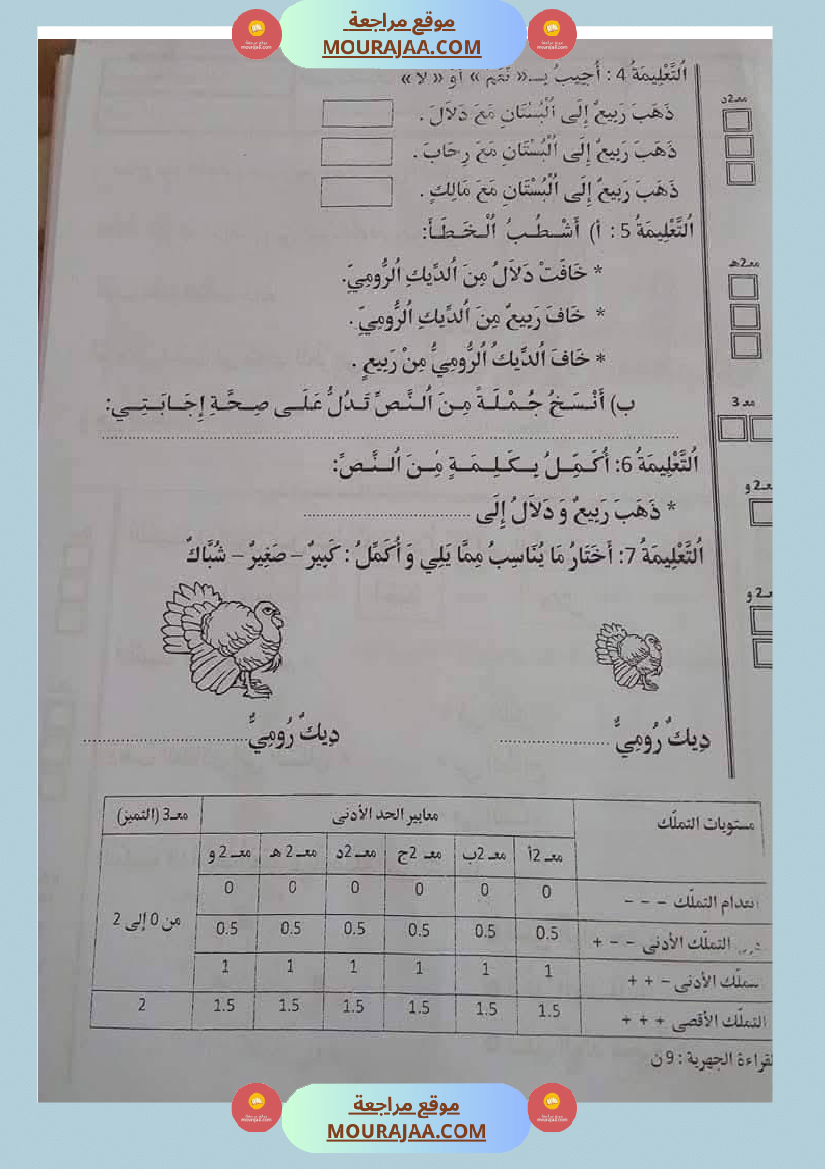 موقع مراجعة
MOURAJAA.COM
اَلتَّعْلِيمَةُ 4 : أُجِيبُ بِـ «نَعَمْ» أَوْ «لَا»
ذَهَبَ رَبِيعٌ إِلَى اَلْبُسْتَانِ مَعَ دَلَالَ .
ذَهَبَ رَبِيعٌ إِلَى اَلْبُسْتَانِ مَعَ رِحَابَ .
ذَهَبَ رَبِيعٌ إِلَى اَلْبُسْتَانِ مَعَ مَالِكٍ .
معـ2د
اَلتَّعْلِيمَةُ 5 : أ) أَشْطُبُ اَلْخَطَأَ:
* خَافَتْ دَلَالُ مِنَ اَلدِّيكِ اَلرُّومِيِّ.
* خَافَ رَبِيعٌ مِنَ اَلدِّيكِ اَلرُّومِيِّ .
* خَافَ اَلدِّيكُ اَلرُّومِيُّ مِنْ رَبِيعٍ .
معـ2هـ
ب) أَنْسَخُ جُمْلَةً مِنَ اَلنَّصِّ تَدُلُّ عَلَى صِحَّةِ إِجَابَتِي:
معـ 3
اَلتَّعْلِيمَةُ 6: أُكَمِّلُ بِكَلِمَةٍ مِنَ اَلنَّصِّ:
* ذَهَبَ رَبِيعٌ وَ دَلَالُ إِلَى ........................
معـ2 و
اَلتَّعْلِيمَةُ 7: أَخْتَارُ مَا يُنَاسِبُ مِمَّا يَلِي وَ أُكَمِّلُ : كَبِيرٌ – صَغِيرٌ – شُبَّاكٌ
معـ2 و
دِيكٌ رُومِيٌّ ........................ دِيكٌ رُومِيٌّ ........................
مستويات التملّك معايير الحد الأدنى معـ3 (التميز)
معـ 2أ معـ 2ب معـ 2ج معـ 2د معـ 2 هـ معـ 2 و
انعدام التملّك – – – 0 0 0 0 0 0 من 0 إلى 2
التملّك الأدنى – – + 0.5 0.5 0.5 0.5 0.5 0.5
التملّك الأدنى – + + 1 1 1 1 1 1
التملّك الأقصى + + + 1.5 1.5 1.5 1.5 1.5 1.5 2
القراءة الجهرية : 9 ن
موقع مراجعة
MOURAJAA.COM